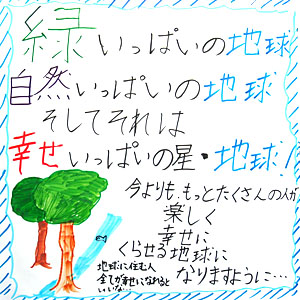 緑いっぱいの地球
自然いっぱいの地球
そしてそれは
幸せいっぱいの星・地球!
今よりも、もっとたくさんの人が
楽しく
幸せに
くらせる地球に
なりますように…
地球に住む人
全てが幸せになれると
いいな…